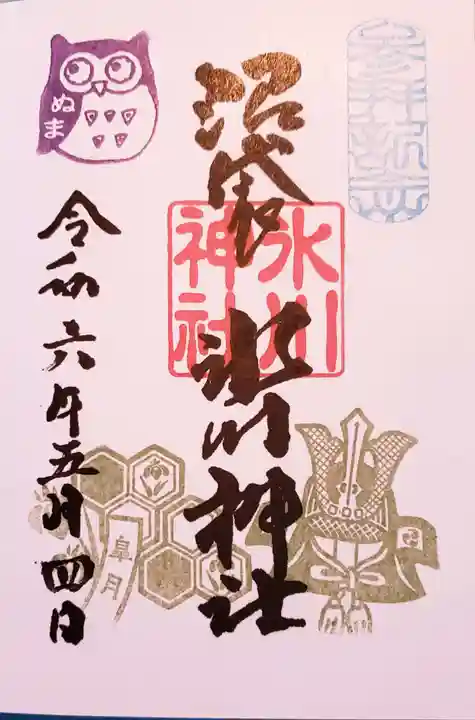 参拝記念
沼袋
氷川神社
氷川
神社
ぬま
令和六年五月四日
皐月